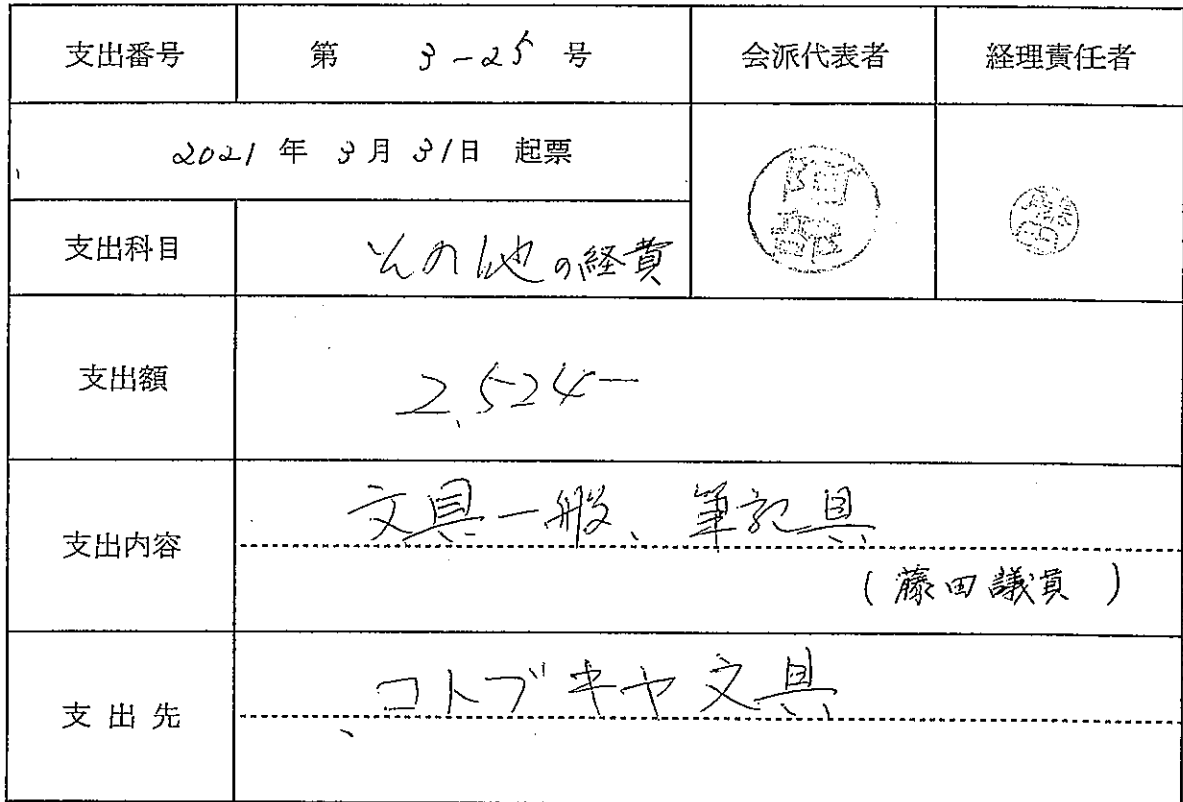 支出番号 第 3-25 号 会派代表者 経理責任者
2021 年 3月 31日 起票
阿部
支出科目 その他の経費
支出額 2,524-
支出内容 文具一般、筆記具
(藤田議員)
支出先 コトブキヤ文具